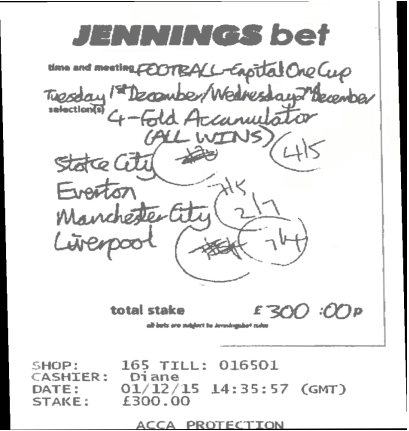 JENNINGS bet
time and meeting FOOTBALL - Capital One Cup
Tuesday 1st December/Wednesday 2nd December
selection(s) 4-Fold Accumulator
(ALL WINS)
Stoke City 4/5
Everton 7/5
Manchester City 2/7
Liverpool 7/4
total stake £ 300 :00 p
all bets are subject to Jenningsbet rules
SHOP: 165 TILL: 016501
CASHIER: Diane
DATE: 01/12/15 14:35:57 (GMT)
STAKE: £300.00
ACCA PROTECTION